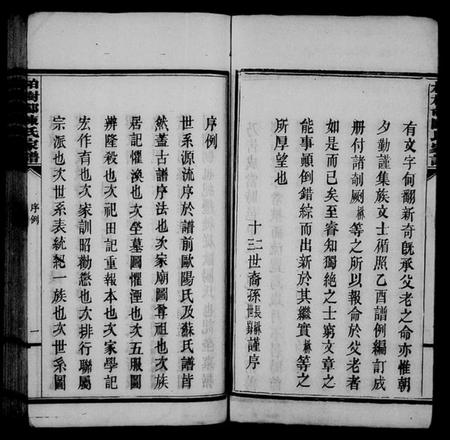 有文字何翻新奇旣承父老之命亦惟朝
夕勤謹集族文士循照乙酉譜例編訂成
册付諸剞劂
等之所以報命於父老者
如是而已矣至睿知獨絕之士窮文章之
能事顚倒錯綜而出新於其繼實
等之
所厚望也
十二世裔孫
謹序
序例
世系源流序於譜前歐陽氏及蘇氏譜皆
然蓋古譜序法也次家廟圖尊祖也次族
居記懼渙也次塋墓圖懼湮也次五服圖
辨隆殺也次祀田記重報本也次家學記
宏作育也次家訓昭勸懲也次排行聯屬
宗派也次世系表統紀一族也次世系圖
陳氏家譜
序例
一